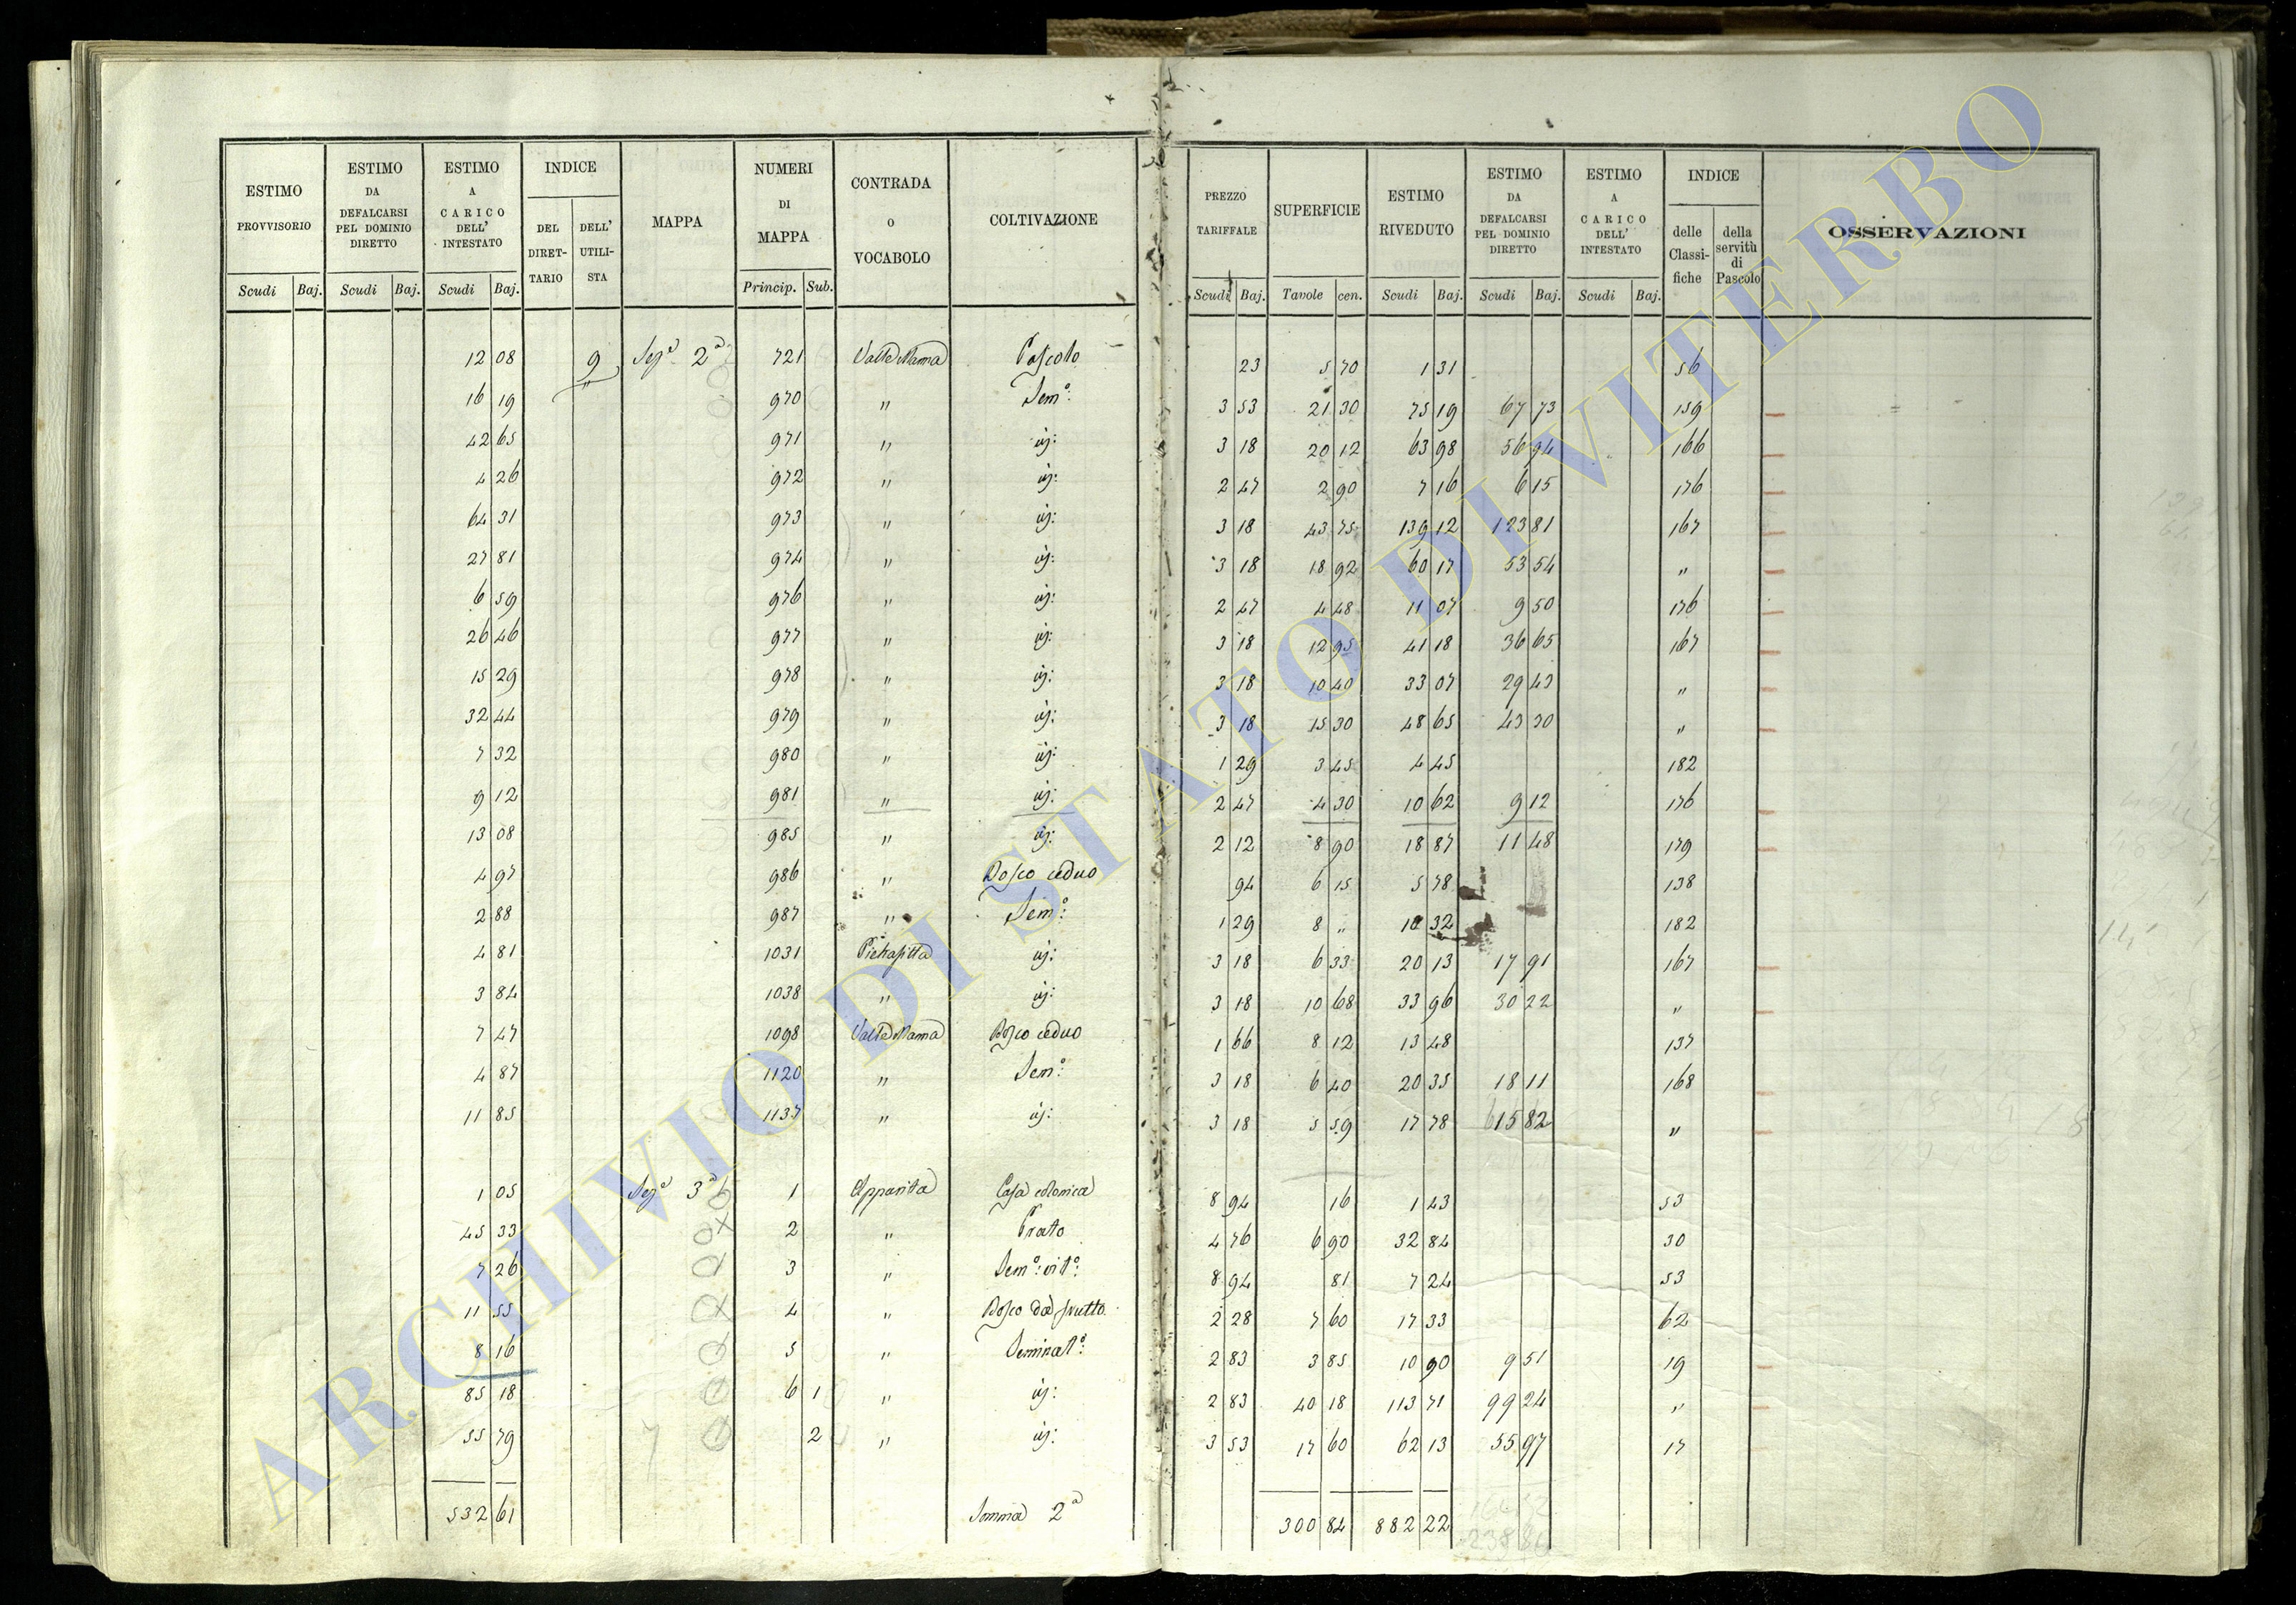 ESTIMO PROVVISORIO | ESTIMO DA DEFALCARSI PEL DOMINIO DIRETTO | ESTIMO A CARICO DELL' INTESTATO | INDICE DEL DIRET-TARIO | DELL' UTILI-STA | MAPPA | NUMERI DI MAPPA | CONTRADA o VOCABOLO | COLTIVAZIONE | PREZZO TARIFFALE | SUPERFICIE | ESTIMO RIVEDUTO | ESTIMO DA DEFALCARSI PEL DOMINIO DIRETTO | ESTIMO A CARICO DELL' INTESTATO | INDICE delle Classi-fiche | della servitù di Pascolo | OSSERVAZIONI
Scudi Baj. | Scudi Baj. | Scudi Baj. | Princip. Sub. | Scudi Baj. | Tavole cen. | Scudi Baj. | Scudi Baj. | Scudi Baj.
12 08 | 9 | Sez.a 2a | 721 | Pascolo | 23 | 5 70 | 1 31 | 56
16 19 | " | 970 | " | Sem.o: | 3 53 | 21 30 | 75 19 | 67 73 | 159
42 65 | 971 | " | id: | 3 18 | 20 12 | 63 98 | 56 94 | 166
4 26 | 972 | " | id: | 2 47 | 2 90 | 7 16 | 6 15 | 176
64 31 | 973 | " | id: | 3 18 | 43 75 | 139 12 | 123 81 | 167
27 81 | 974 | " | id: | 3 18 | 18 92 | 60 17 | 53 54 | "
6 59 | 976 | " | id: | 2 47 | 4 48 | 11 07 | 9 50 | 176
26 46 | 977 | " | id: | 3 18 | 12 95 | 41 18 | 36 65 | 167
15 29 | 978 | " | id: | 3 18 | 10 40 | 33 07 | 29 43 | "
32 44 | 979 | " | id: | 3 18 | 15 30 | 48 65 | 43 30 | "
7 32 | 980 | " | id: | 1 29 | 3 45 | 4 45 | 182
9 12 | 981 | " | id: | 2 47 | 4 30 | 10 62 | 9 12 | 176
13 08 | 985 | " | id: | 2 12 | 8 90 | 18 87 | 11 48 | 179
4 97 | 986 | " | Bosco ceduo | 94 | 6 15 | 5 78 | 138
2 88 | 987 | " | Sem.o: | 1 29 | 8 " | 10 32 | 182
4 81 | 1031 | Pietrafitta | id: | 3 18 | 6 33 | 20 13 | 17 91 | 167
3 84 | 1038 | " | id: | 3 18 | 10 68 | 33 96 | 30 22 | "
7 47 | 1098 | Bosco ceduo | 1 66 | 8 12 | 13 48 | 137
4 87 | 1120 | " | Sem.o: | 3 18 | 6 40 | 20 35 | 18 11 | 168
11 85 | 1137 | " | id: | 3 18 | 5 59 | 17 78 | 15 82 | "
1 05 | Sez.a 3a | 1 | Apparita | Casa colonica | 8 94 | 16 | 1 43 | 53
45 33 | 2 | " | Prato | 4 76 | 6 90 | 32 84 | 30
7 26 | 3 | " | Sem.o: vit.o: | 8 94 | 81 | 7 24 | 53
11 55 | 4 | " | Bosco da frutto | 2 28 | 7 60 | 17 33 | 62
8 16 | 5 | " | Seminat.o: | 2 83 | 3 85 | 10 90 | 9 51 | 19
85 18 | 6 1 | " | id: | 2 83 | 40 18 | 113 71 | 99 24 | "
55 79 | 2 | " | id: | 3 53 | 17 60 | 62 13 | 55 97 | 17
532 61 | Somma 2a | 300 84 | 882 22
ARCHIVIO DI STATO DI VITERBO